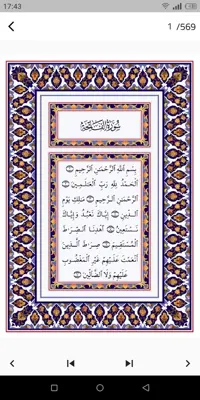 17:43
1 /569
سُورَةُ الْفَاتِحَةِ
بِسْمِ اللَّهِ الرَّحْمَٰنِ الرَّحِيمِ
الْحَمْدُ لِلَّهِ رَبِّ الْعَٰلَمِينَ
الرَّحْمَٰنِ الرَّحِيمِ مَٰلِكِ يَوْمِ
الدِّينِ إِيَّاكَ نَعْبُدُ وَإِيَّاكَ
نَسْتَعِينُ اهْدِنَا الصِّرَٰطَ
الْمُسْتَقِيمَ صِرَٰطَ الَّذِينَ
أَنْعَمْتَ عَلَيْهِمْ غَيْرِ الْمَغْضُوبِ
عَلَيْهِمْ وَلَا الضَّالِّينَ